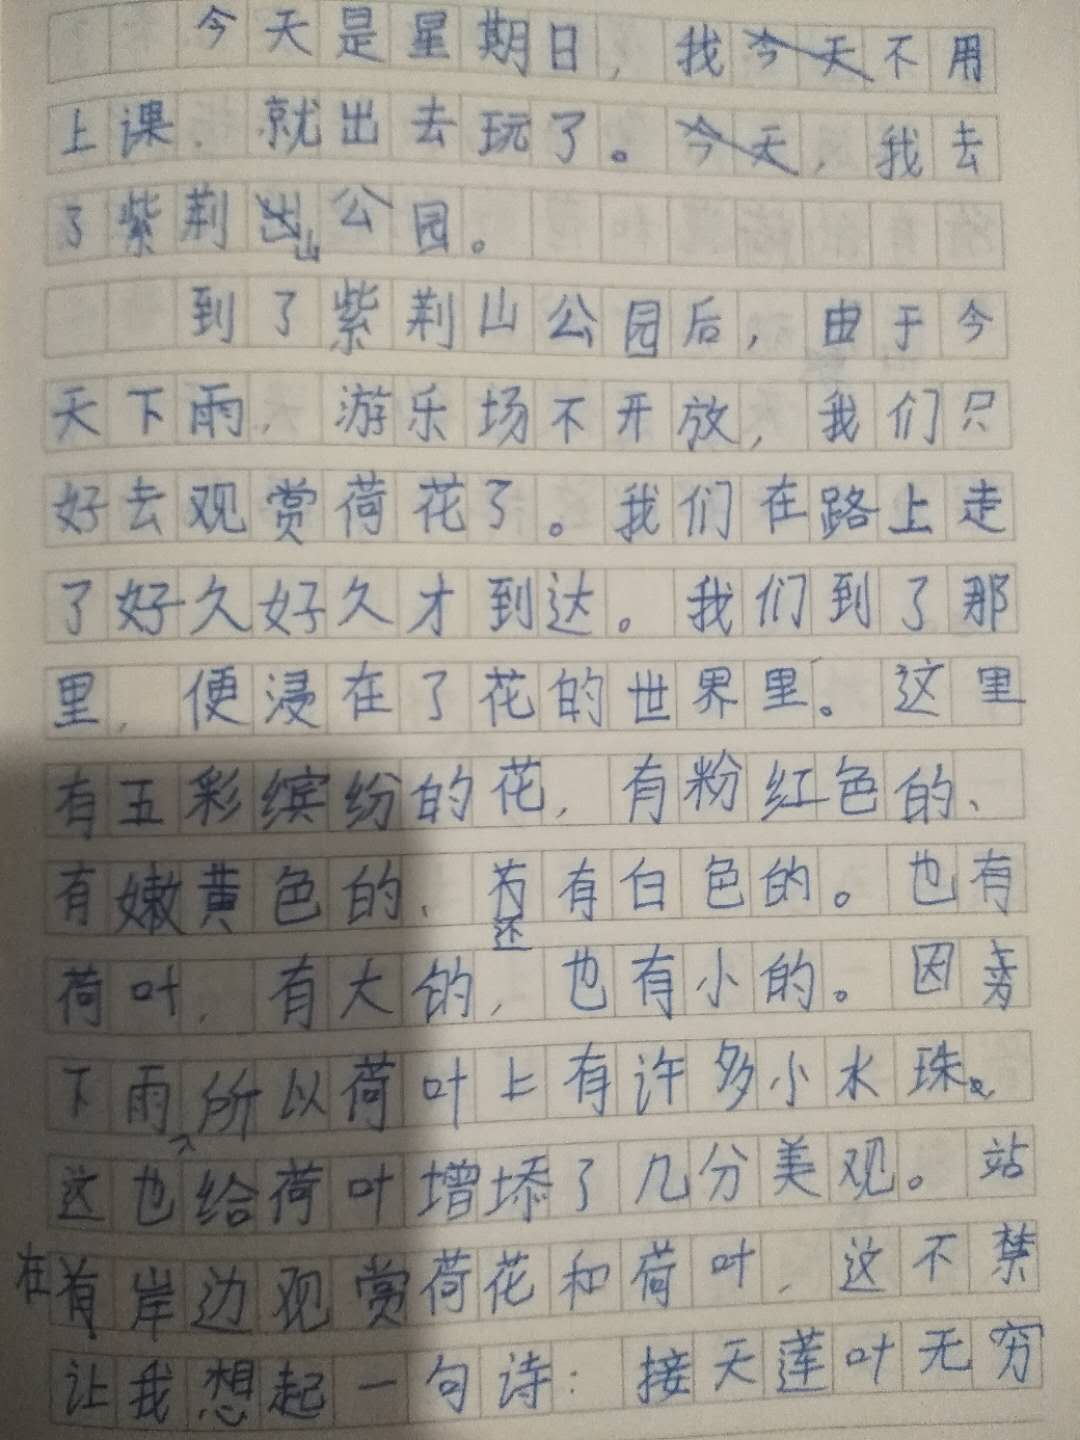 今天是星期日，我今天不用
上课，就出去玩了。今天，我去
了紫荆山公园。
到了紫荆山公园后，由于今
天下雨，游乐场不开放，我们只
好去观赏荷花了。我们在路上走
了好久好久才到达。我们到了那
里，便浸在了花的世界里。这里
有五彩缤纷的花，有粉红色的、
有嫩黄色的、还有白色的。也有
荷叶，有大的，也有小的。因为
下雨，所以荷叶上有许多小水珠。
这也给荷叶增添了几分美观。站
在岸边观赏荷花和荷叶，这不禁
让我想起一句诗：接天莲叶无穷